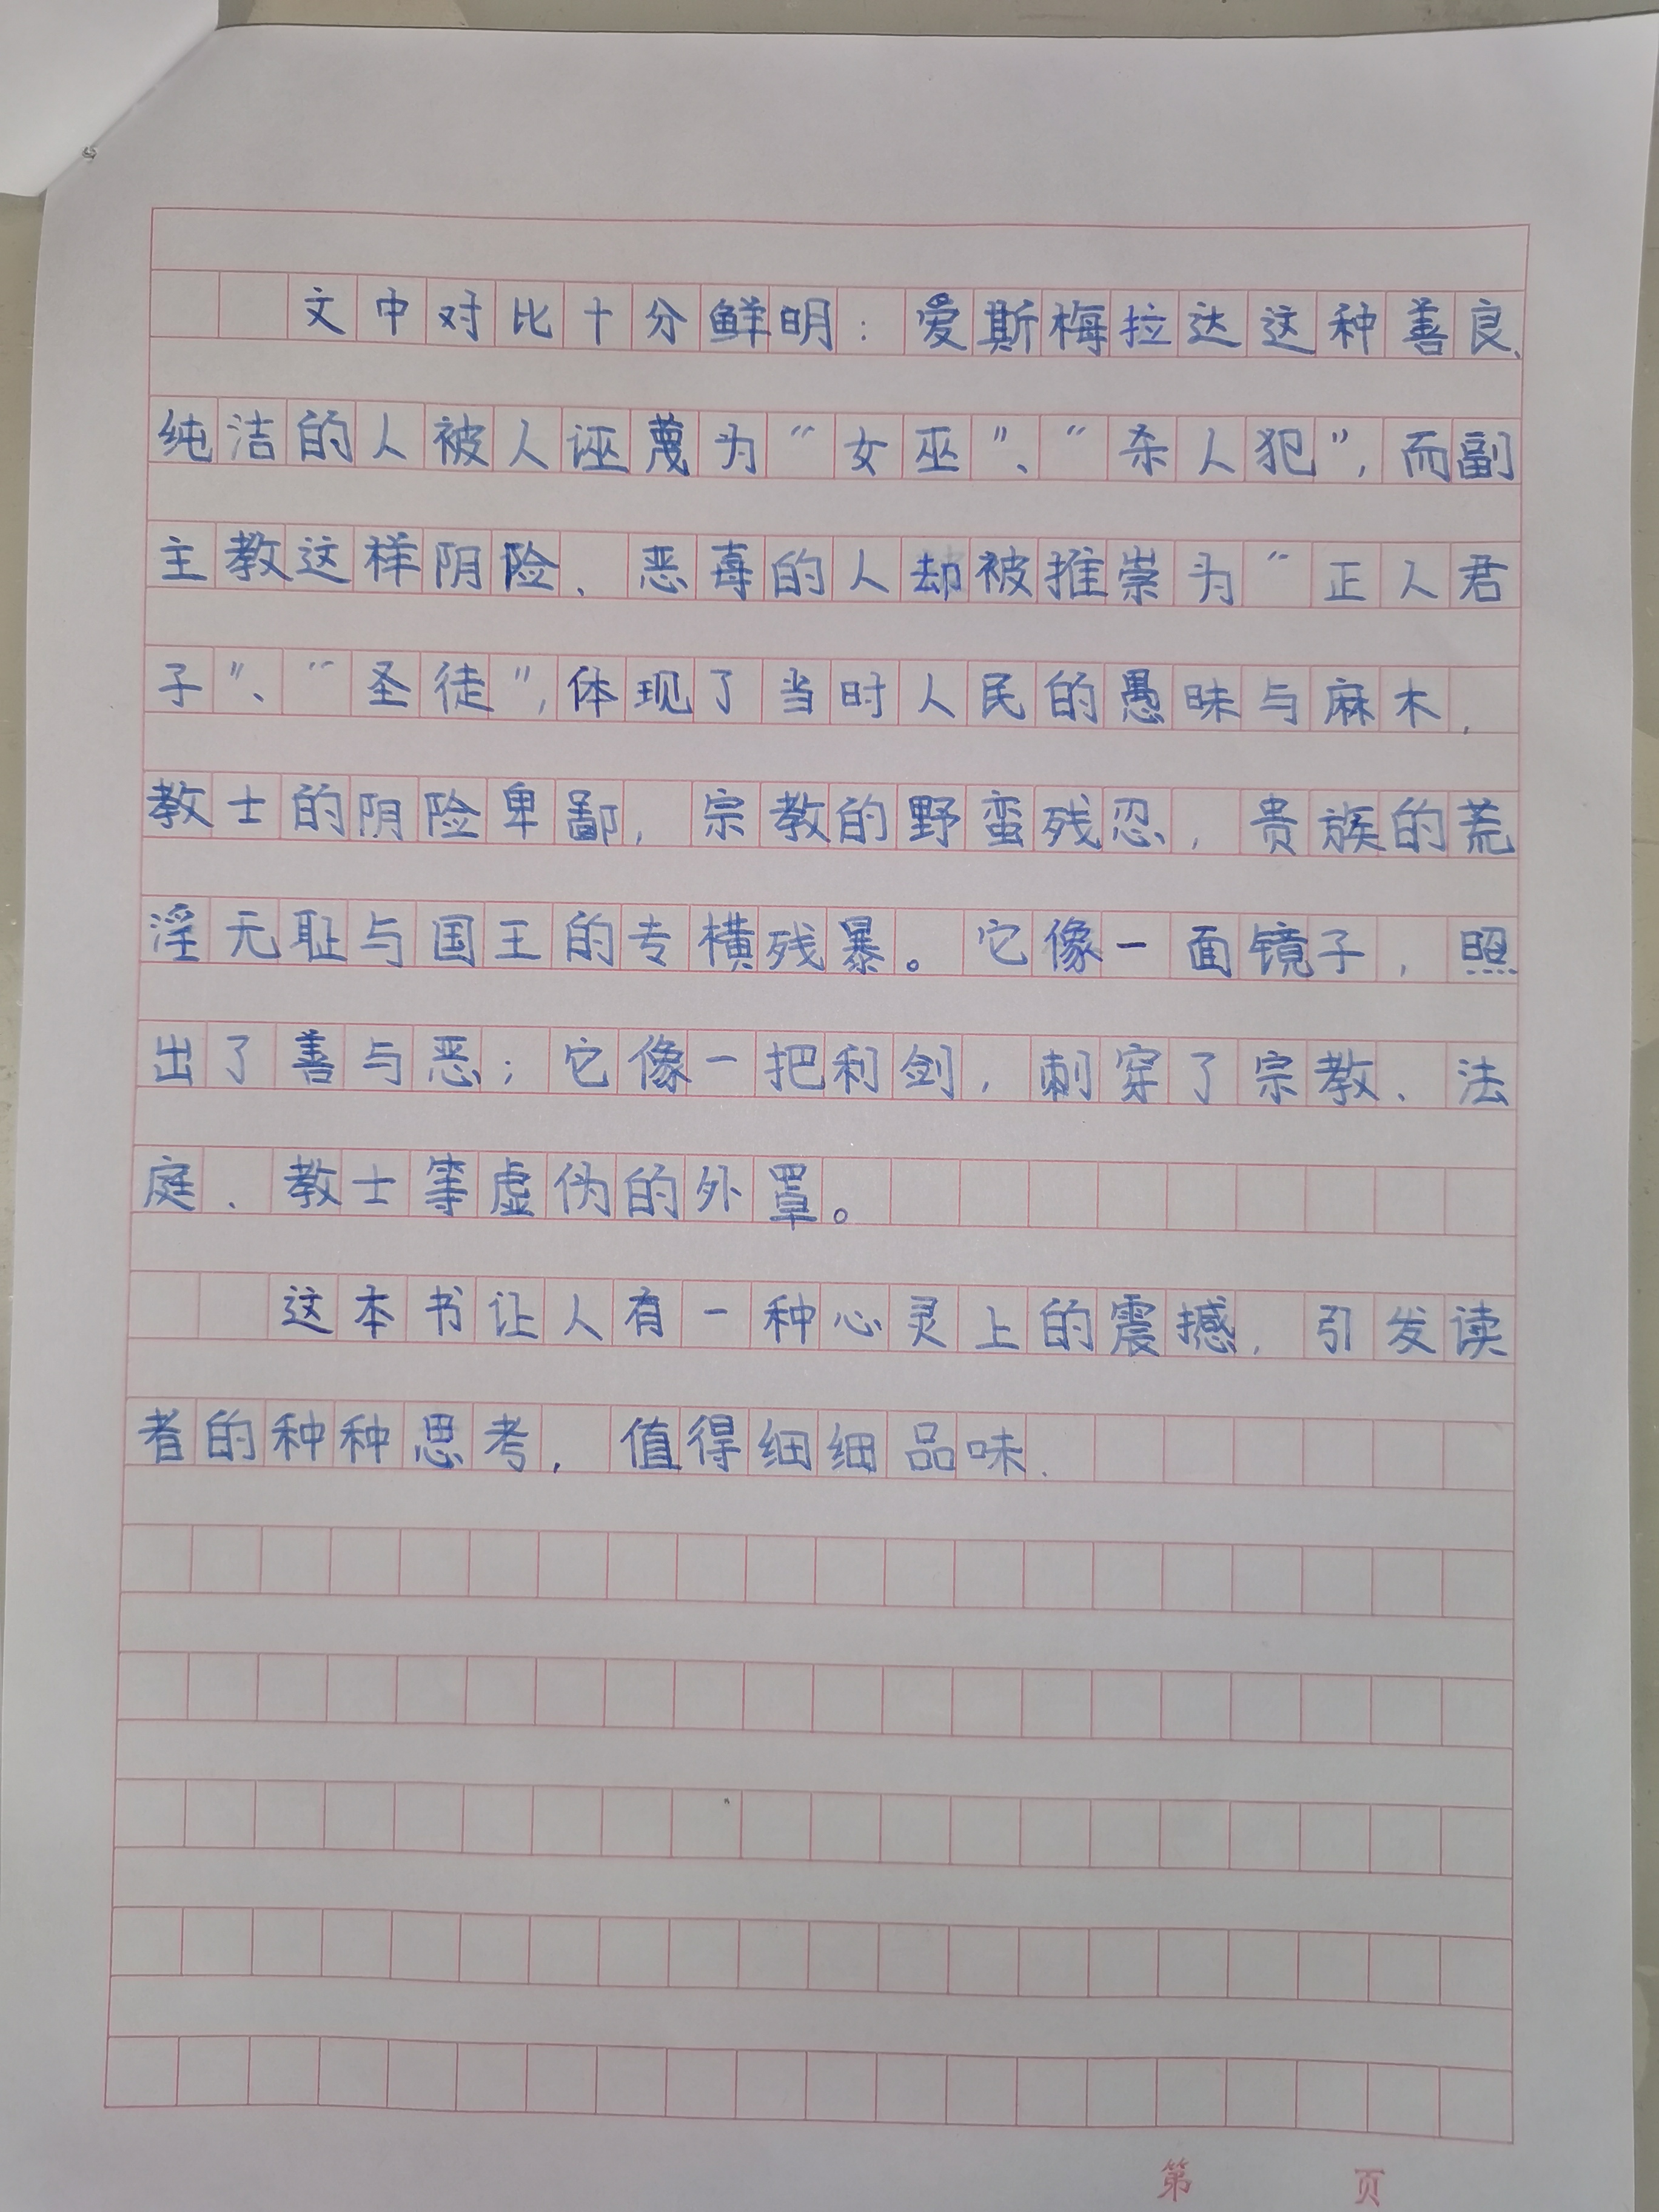 文中对比十分鲜明：爱斯梅拉达这种善良、
纯洁的人被人诬蔑为“女巫”、“杀人犯”，而副
主教这样阴险、恶毒的人却被推崇为“正人君
子”、“圣徒”，体现了当时人民的愚昧与麻木，
教士的阴险卑鄙，宗教的野蛮残忍，贵族的荒
淫无耻与国王的专横残暴。它像一面镜子，照
出了善与恶；它像一把利剑，刺穿了宗教、法
庭、教士等虚伪的外罩。
这本书让人有一种心灵上的震撼，引发读
者的种种思考，值得细细品味．
第 页